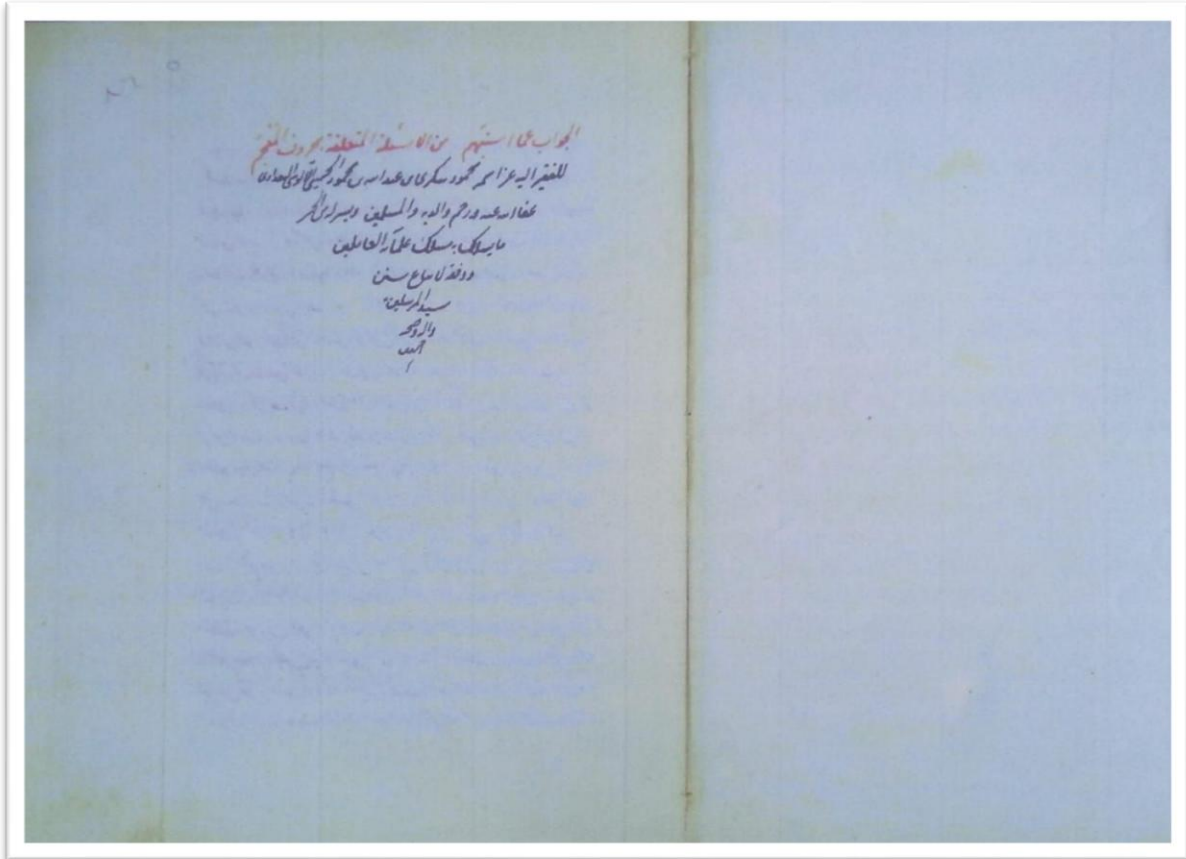 الجواب عما استبهم من الاسئلة المتعلقة بحروف المعجم
للفقير اليه عز اسمه محمود شكري بن عبد الله بن محمود الحسيني الآلوسي البغدادي
عفا الله عنه ورحم والديه والمسلمين ويسر له من الخير
ما يسلك به مسلك علمائه العاملين
ووفقه لاتباع سنن
سيد المرسلين
وآله وصحبه
اجمعين